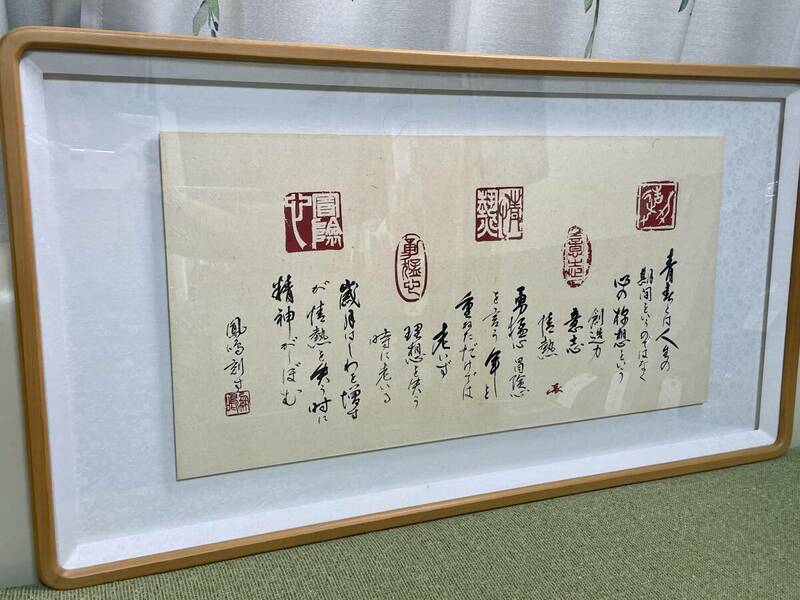 青春とは人生の
期間というのではなく
心の様想という
創造力
意志
情熱
勇猛心冒険心
を言う年を
重ねただけでは
老いず
理想を失う
時に老いる
歳月はしわを増す
が情熱を失う時に
精神がしぼむ
鳳鳴刻す
意志
情熱
勇猛心
冒険心